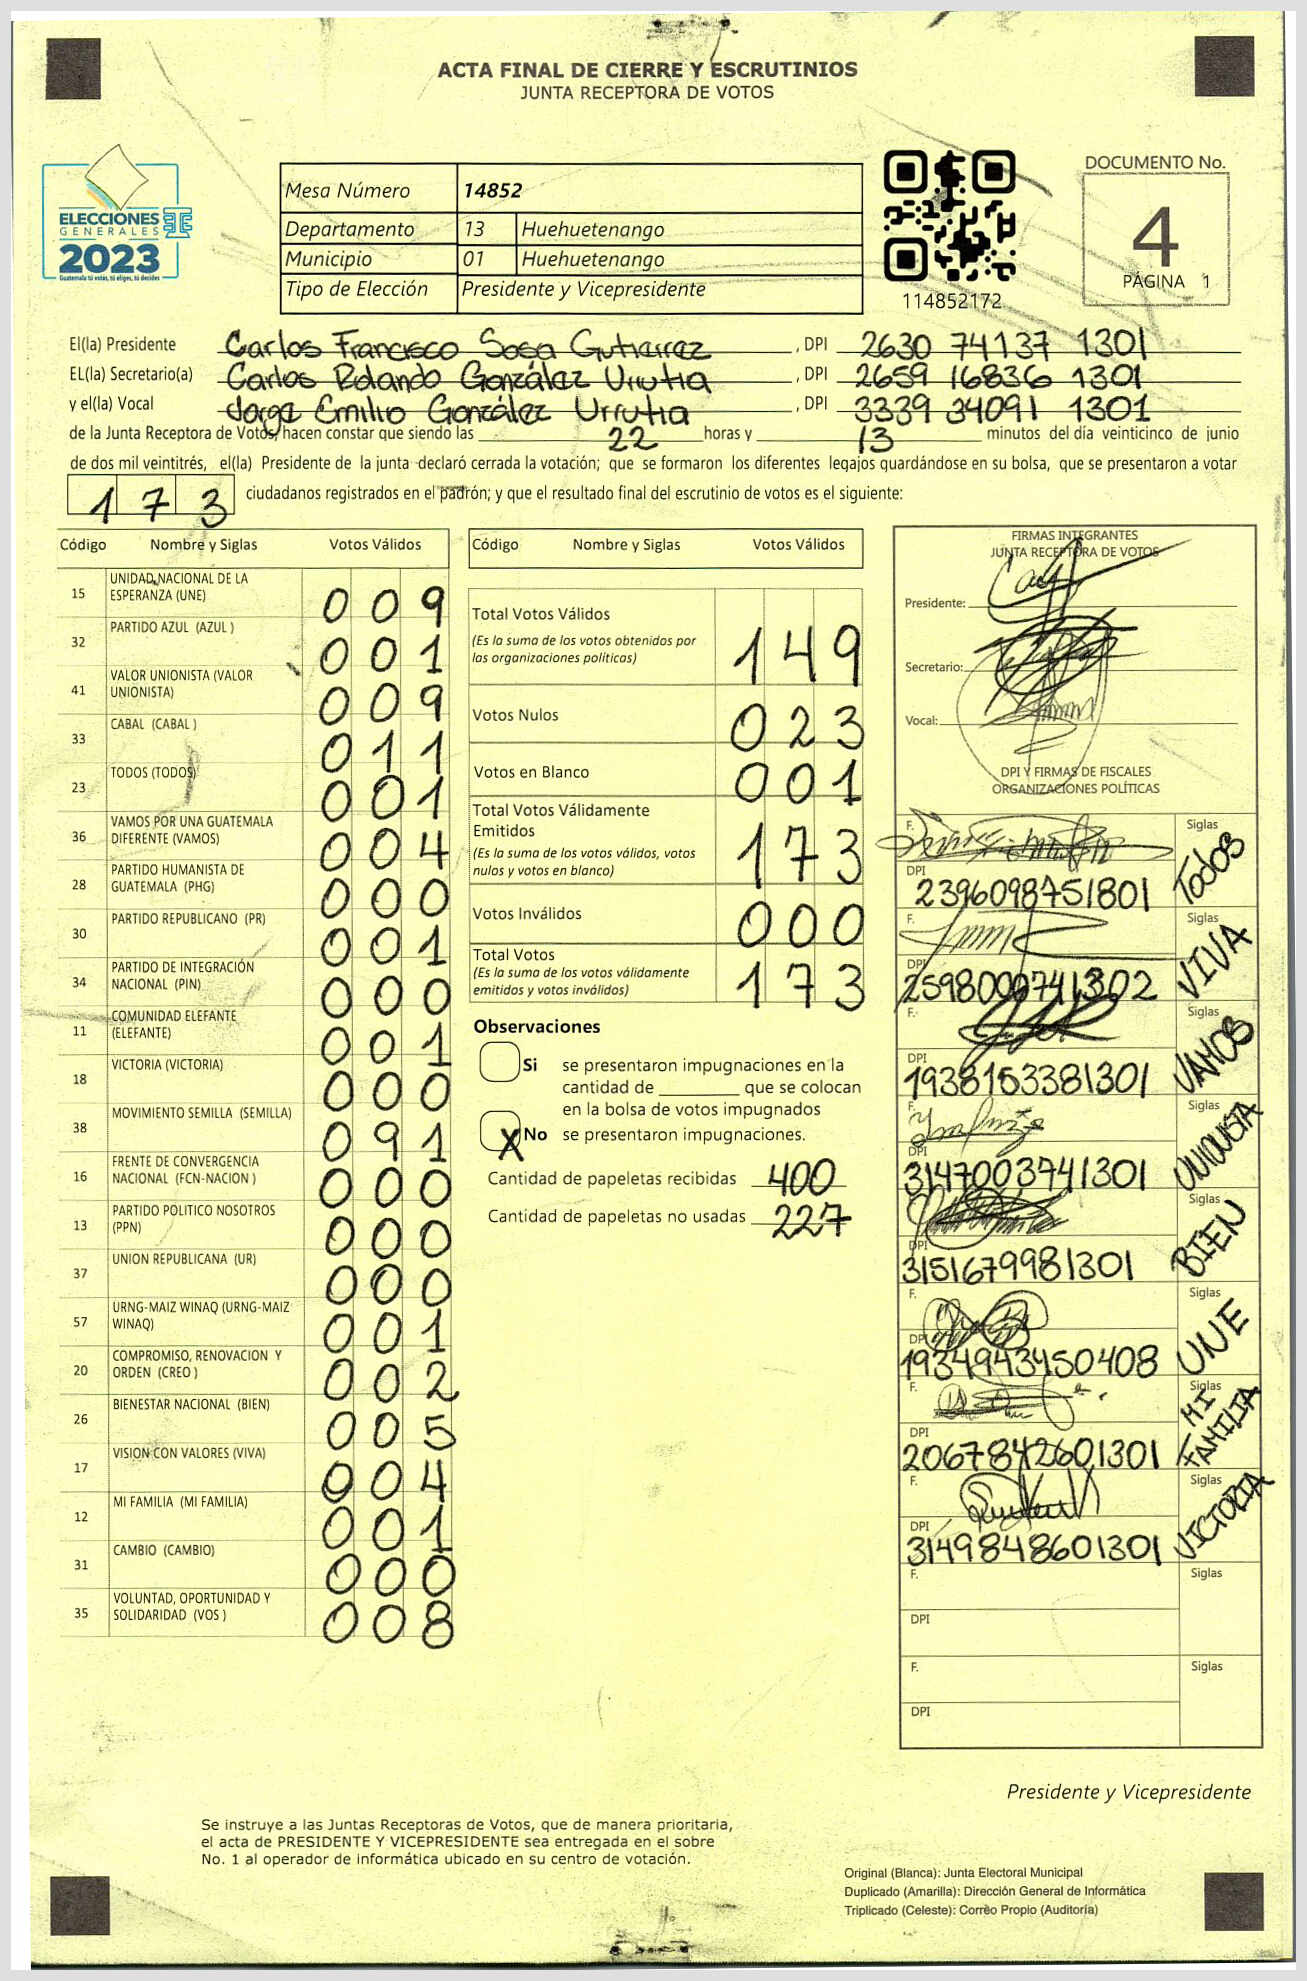 ACTA FINAL DE CIERRE Y ESCRUTINIOS
JUNTA RECEPTORA DE VOTOS
ELECCIONES
GENERALES
2023
Guatemala tú votas, tú eliges, tú decides
Mesa Número 14852
Departamento 13 Huehuetenango
Municipio 01 Huehuetenango
Tipo de Elección Presidente y Vicepresidente
114852172
DOCUMENTO No.
4
PÁGINA 1
El(la) Presidente Carlos Francisco Sosa Gutierrez , DPI 2630 74137 1301
EL(la) Secretario(a) Carlos Rolando González Urrutia , DPI 2659 16836 1301
y el(la) Vocal Jorge Emilio González Urrutia , DPI 3339 34091 1301
de la Junta Receptora de Votos, hacen constar que siendo las 22 horas y 13 minutos del día veinticinco de junio
de dos mil veintitrés, el(la) Presidente de la junta declaró cerrada la votación; que se formaron los diferentes legajos guardándose en su bolsa, que se presentaron a votar
173 ciudadanos registrados en el padrón; y que el resultado final del escrutinio de votos es el siguiente:
Código Nombre y Siglas Votos Válidos
15 UNIDAD NACIONAL DE LA
ESPERANZA (UNE) 009
32 PARTIDO AZUL (AZUL ) 001
41 VALOR UNIONISTA (VALOR
UNIONISTA) 009
33 CABAL (CABAL ) 011
23 TODOS (TODOS) 001
36 VAMOS POR UNA GUATEMALA
DIFERENTE (VAMOS) 004
28 PARTIDO HUMANISTA DE
GUATEMALA (PHG) 000
30 PARTIDO REPUBLICANO (PR) 001
34 PARTIDO DE INTEGRACIÓN
NACIONAL (PIN) 000
11 COMUNIDAD ELEFANTE
(ELEFANTE) 001
18 VICTORIA (VICTORIA) 000
38 MOVIMIENTO SEMILLA (SEMILLA) 091
16 FRENTE DE CONVERGENCIA
NACIONAL (FCN-NACION ) 000
13 PARTIDO POLITICO NOSOTROS
(PPN) 000
37 UNION REPUBLICANA (UR) 000
57 URNG-MAIZ WINAQ (URNG-MAIZ
WINAQ) 001
20 COMPROMISO, RENOVACION Y
ORDEN (CREO ) 002
26 BIENESTAR NACIONAL (BIEN) 005
17 VISION CON VALORES (VIVA) 004
12 MI FAMILIA (MI FAMILIA) 001
31 CAMBIO (CAMBIO) 000
35 VOLUNTAD, OPORTUNIDAD Y
SOLIDARIDAD (VOS ) 008
Código Nombre y Siglas Votos Válidos
Total Votos Válidos
(Es la suma de los votos obtenidos por
las organizaciones políticas) 149
Votos Nulos 023
Votos en Blanco 001
Total Votos Válidamente
Emitidos
(Es la suma de los votos válidos, votos
nulos y votos en blanco) 173
Votos Inválidos 000
Total Votos
(Es la suma de los votos válidamente
emitidos y votos inválidos) 173
Observaciones
Si se presentaron impugnaciones en la
cantidad de ________ que se colocan
en la bolsa de votos impugnados
X No se presentaron impugnaciones.
Cantidad de papeletas recibidas 400
Cantidad de papeletas no usadas 227
FIRMAS INTEGRANTES
JUNTA RECEPTORA DE VOTOS
Presidente:
Secretario:
Vocal:
DPI Y FIRMAS DE FISCALES
ORGANIZACIONES POLÍTICAS
F. Siglas
DPI
2396098751801 TODOS
F. Siglas
DPI
2598000741302 VIVA
F. Siglas
DPI
1938153381301 VAMOS
F. Siglas
DPI
3147003741301 UNIONISTA
F. Siglas
DPI
3151679981301 BIEN
F. Siglas
DPI
1934943450408 UNE
F. Siglas
DPI
2067842601301 MI FAMILIA
F. Siglas
DPI
3149848601301 VICTORIA
F. Siglas
DPI
F. Siglas
DPI
Presidente y Vicepresidente
Se instruye a las Juntas Receptoras de Votos, que de manera prioritaria,
el acta de PRESIDENTE Y VICEPRESIDENTE sea entregada en el sobre
No. 1 al operador de informática ubicado en su centro de votación.
Original (Blanca): Junta Electoral Municipal
Duplicado (Amarilla): Dirección General de Informática
Triplicado (Celeste): Correo Propio (Auditoría)